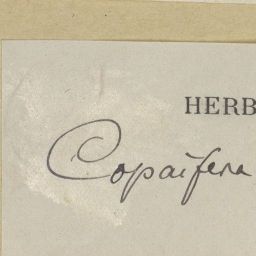 HERB
Copaifera